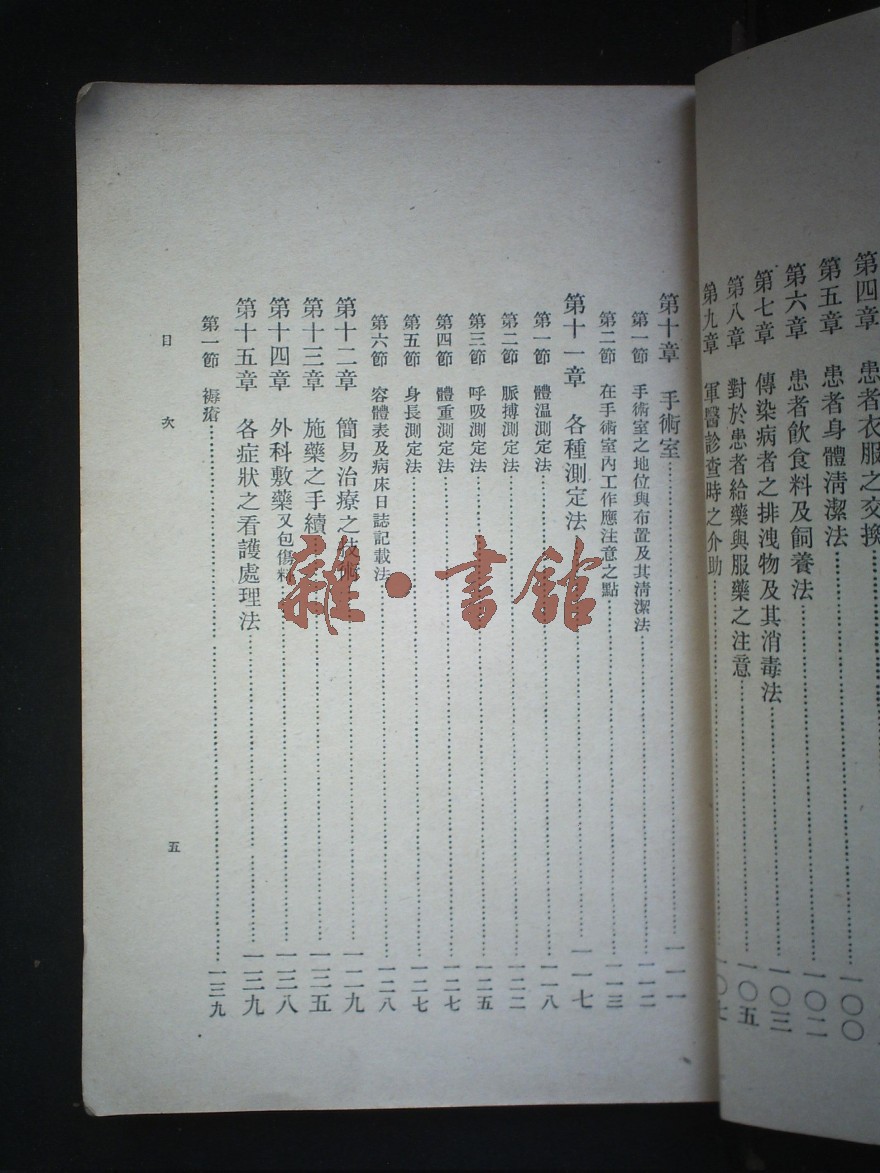 第四章 患者衣服之交換
第五章 患者身體清潔法……一〇〇
第六章 患者飲食料及飼養法……一〇二
第七章 傳染病者之排洩物及其消毒法……一〇三
第八章 對於患者給藥與服藥之注意……一〇五
第九章 軍醫診查時之介助……一〇七
第十章 手術室……一一一
第一節 手術室之地位與布置及其清潔法……一一二
第二節 在手術室內工作應注意之點……一一三
第十一章 各種測定法……一一七
第一節 體温測定法……一一八
第二節 脈搏測定法……一二二
第三節 呼吸測定法……一二五
第四節 體重測定法……一二七
第五節 身長測定法……一二七
第六節 容體表及病床日誌記載法……一二八
第十二章 簡易治療之技術……一二九
第十三章 施藥之手續……一三五
第十四章 外科敷藥又包傷料……一三八
第十五章 各症狀之看護處理法……一三九
第一節 褥瘡……一三九
目次 五
雜·書館